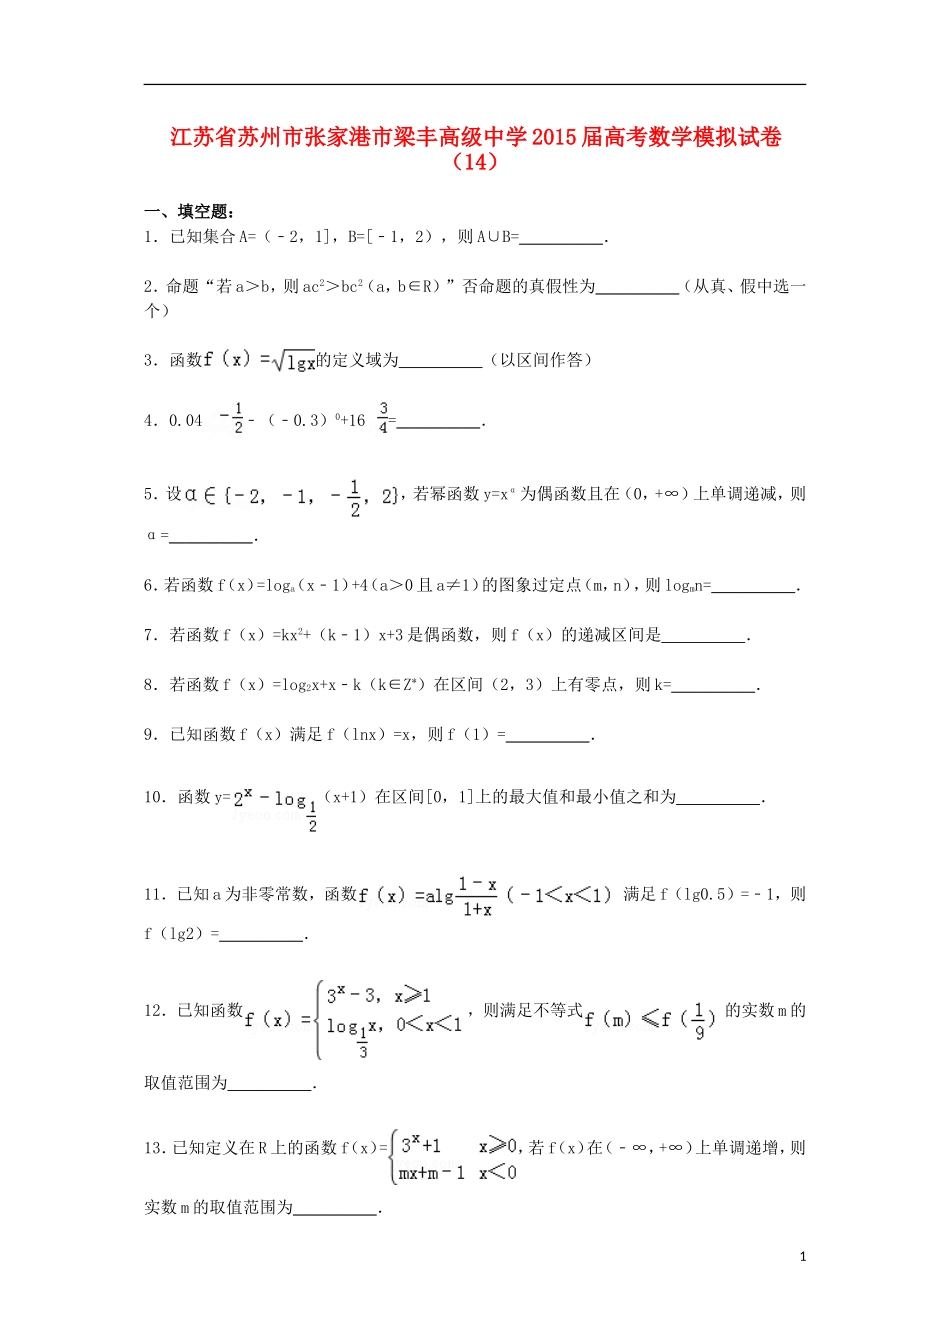 江苏省苏州市张家港市梁丰高级中学 2015 届高考数学模拟试卷
（14）
一、填空题：
1．已知集合 A=（﹣2，1]，B=[﹣1，2），则 A∪B=__________．
2．命题“若 a＞b，则 ac²＞bc²（a，b∈R）”否命题的真假性为__________（从真、假中选一
个）
3．函数f（x）=√lgx的定义域为__________（以区间作答）
4．0.04^(-1/2)﹣（﹣0.3）⁰+16^(3/4)=__________．
5．设α∈{-2，-1，-1/2，2}，若幂函数 y=x^α 为偶函数且在（0，+∞）上单调递减，则
α=__________．
6．若函数 f（x）=logₐ（x﹣1）+4（a＞0 且 a≠1）的图象过定点（m，n），则 logₘn=__________．
7．若函数 f（x）=kx²+（k﹣1）x+3 是偶函数，则 f（x）的递减区间是__________．
8．若函数 f（x）=log₂x+x﹣k（k∈Z*）在区间（2，3）上有零点，则 k=__________．
9．已知函数 f（x）满足 f（lnx）=x，则 f（1）=__________．
10．函数 y=2^x-log_(1/2)（x+1）在区间[0，1]上的最大值和最小值之和为__________．
11．已知 a 为非零常数，函数f（x）=alg (1-x)/(1+x)（-1＜x＜1）满足 f（lg0.5）=﹣1，则
f（lg2）=__________．
12．已知函数f（x）={3^x-3，x⩾1；log_(1/3)x，0＜x＜1，则满足不等式f（m）⩽f（1/9）的实数 m 的
取值范围为__________．
13．已知定义在 R 上的函数 f（x）={3^x+1 x⩾0；mx+m-1 x＜0，若 f（x）在（﹣∞，+∞）上单调递增，则
实数 m 的取值范围为__________．
1